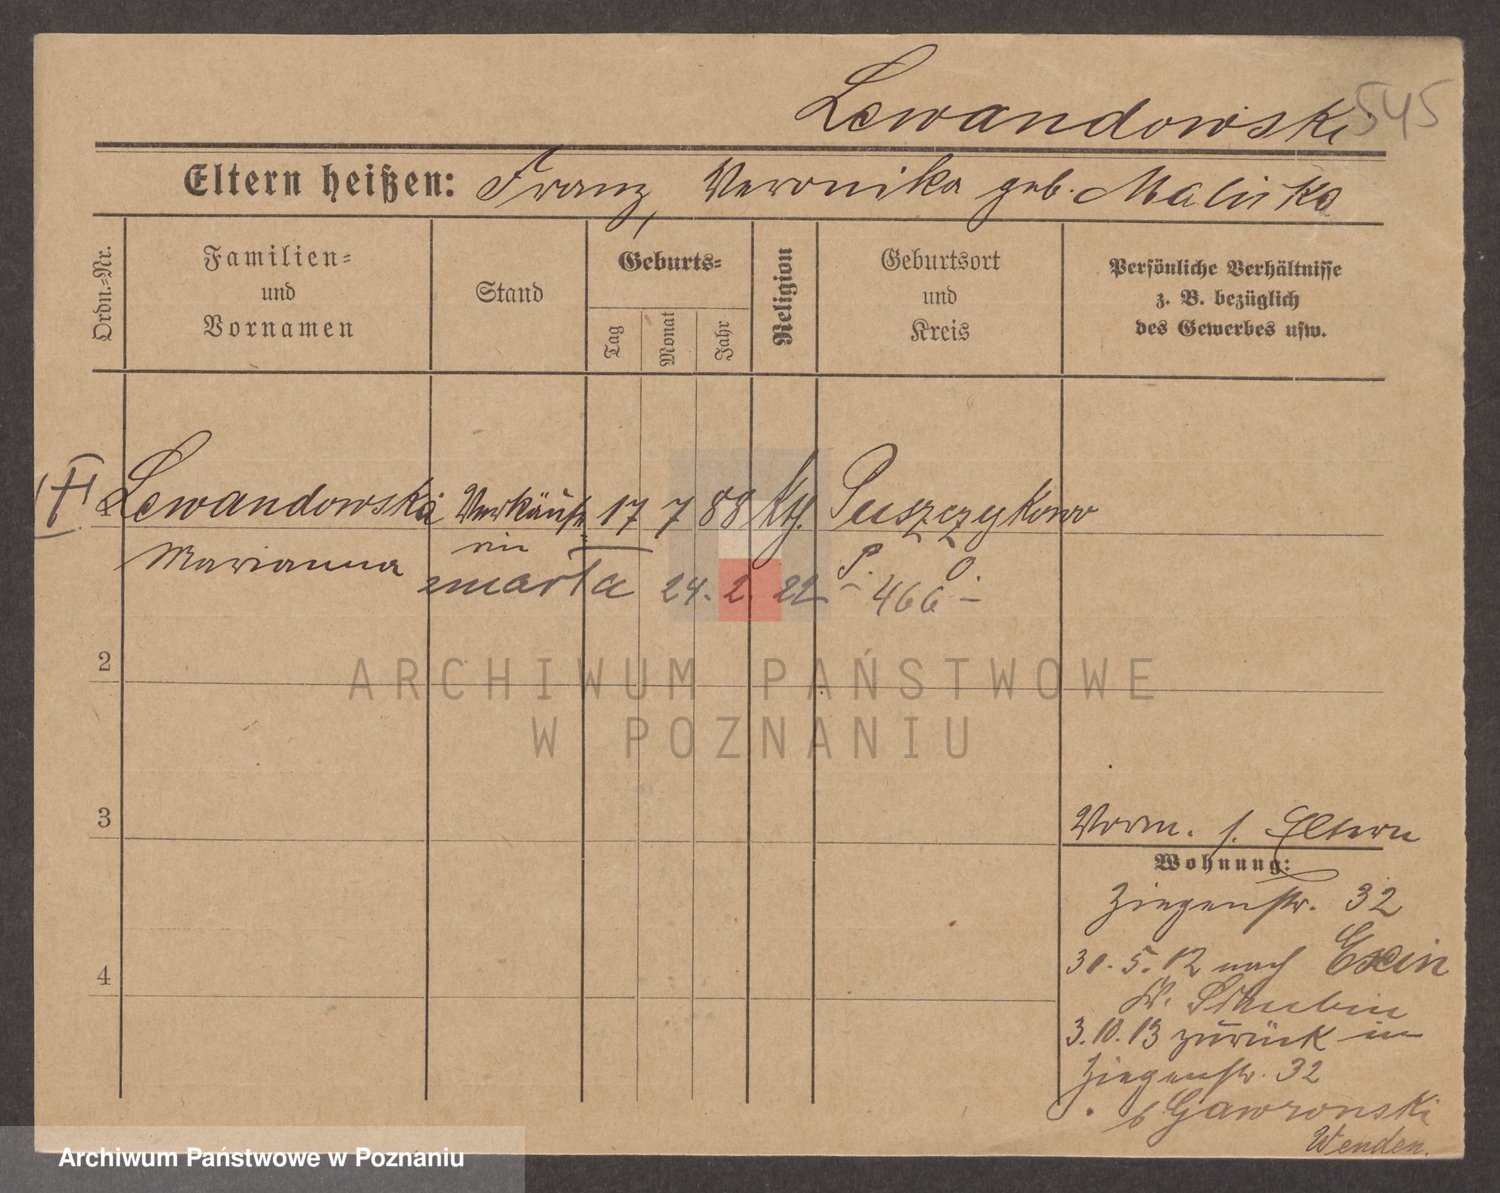 Lewandowski 545
Eltern heißen: Franz, Veronika geb. Maliska
Ordn.-Nr.
Familien-
und
Vornamen
Stand
Geburts-
Tag
Monat
Jahr
Religion
Geburtsort
und
Kreis
Persönliche Verhältnisse
z. B. bezüglich
des Gewerbes usw.
1 Lewandowska Verkäufe 17 7 88 Kg. Puszczykowo
rin
Marianna P. O.
zmarła 24. 2. 22 – 466 –
2
3
4
Vorm. s. Eltern
Wohnung:
Ziegenstr. 32
30. 5. 12 nach Exin
Kr. Schubin
3. 10. 13 zurück in
Ziegenstr. 32
b Gawronski
Wenden.
ARCHIWUM PAŃSTWOWE
W POZNANIU
Archiwum Państwowe w Poznaniu